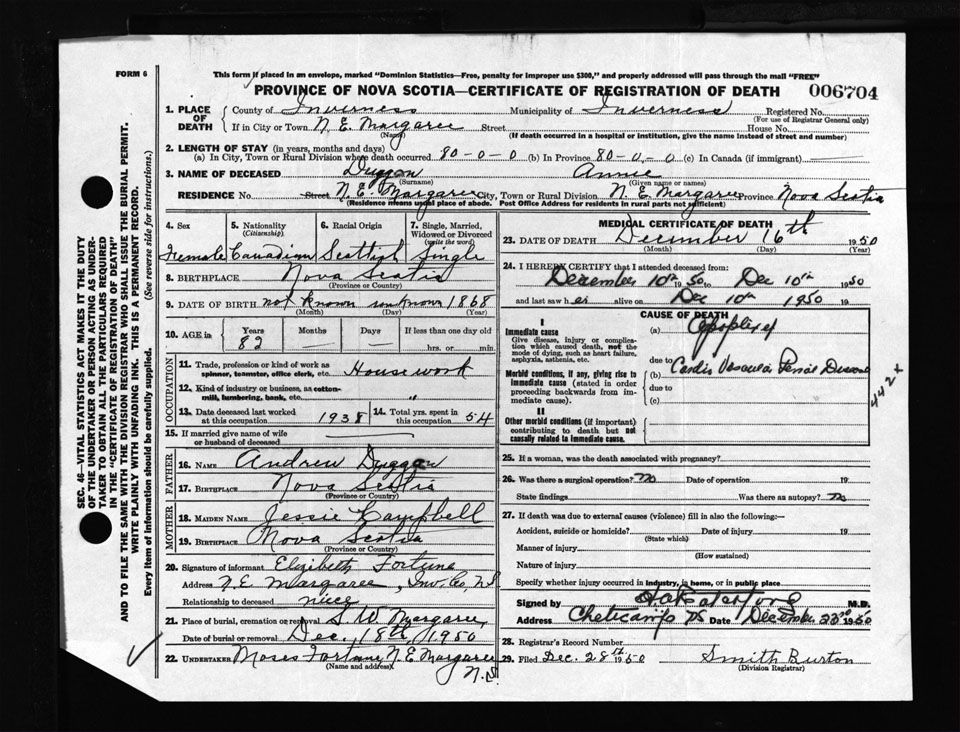 FORM 6
This form if placed in an envelope, marked "Dominion Statistics—Free, penalty for improper use $300," and properly addressed will pass through the mail "FREE"
PROVINCE OF NOVA SCOTIA—CERTIFICATE OF REGISTRATION OF DEATH 006704
1. PLACE OF DEATH
County of Inverness Municipality of Inverness Registered No.
(For use of Registrar General only)
If in City or Town N. E. Margaree Street House No.
(Name) (If death occurred in a hospital or institution, give the name instead of street and number)
2. LENGTH OF STAY (in years, months and days)
(a) In City, Town or Rural Division where death occurred 80-0-0 (b) In Province 80-0-0 (c) In Canada (if immigrant)
3. NAME OF DECEASED Duggan Annie
(Surname) (Given name or names)
RESIDENCE No. Street N. E. Margaree City, Town or Rural Division N. E. Margaree Province Nova Scotia
(Residence means usual place of abode. Post Office Address for residents in rural parts not sufficient)
4. Sex 5. Nationality (Citizenship) 6. Racial Origin 7. Single, Married, Widowed or Divorced (write the word)
Female Canadian Scottish Single
8. BIRTHPLACE Nova Scotia
(Province or Country)
9. DATE OF BIRTH not known unknown 1868
(Month) (Day) (Year)
10. AGE in Years Months Days If less than one day old
82 hrs. or min.
OCCUPATION
11. Trade, profession or kind of work as spinner, teamster, office clerk, etc. Housework
12. Kind of industry or business, as cotton-mill, lumbering, bank, etc. "
13. Date deceased last worked at this occupation 1938 14. Total yrs. spent in this occupation 54
15. If married give name of wife or husband of deceased
FATHER
16. NAME Andrew Duggan
17. BIRTHPLACE Nova Scotia
(Province or Country)
MOTHER
18. MAIDEN NAME Jessie Campbell
19. BIRTHPLACE Nova Scotia
(Province or Country)
20. Signature of informant Elizabeth Fortune
Address N. E. Margaree, Inv. Co, N.S.
Relationship to deceased niece
21. Place of burial, cremation or removal S. W. Margaree,
Date of burial or removal Dec. 18th, 1950
22. UNDERTAKER Moses Fortune N. E. Margaree
(Name and address) N.S.
MEDICAL CERTIFICATE OF DEATH
23. DATE OF DEATH December 16th 1950
(Month) (Day) (Year)
24. I HEREBY CERTIFY that I attended deceased from:
December 10th 1950 to Dec 10th 1950
and last saw her alive on Dec 10th 1950 19
CAUSE OF DEATH
I
Immediate cause
Give disease, injury or complication which caused death, not the mode of dying, such as heart failure, asphyxia, asthenia, etc.
(a) Apoplexy
due to
Morbid conditions, if any, giving rise to immediate cause (stated in order proceeding backwards from immediate cause).
(b) Cardio Vascular Renal Disease
due to
(c)
442+
II
Other morbid conditions (if important) contributing to death but not causally related to immediate cause.
25. If a woman, was the death associated with pregnancy?
26. Was there a surgical operation? No Date of operation 19
State findings Was there an autopsy? No
27. If death was due to external causes (violence) fill in also the following:—
Accident, suicide or homicide? Date of injury 19
(State which)
Manner of injury
(How sustained)
Nature of injury
Specify whether injury occurred in industry, in home, or in public place
Signed by M.D.
Address Cheticamp NS Date December 23rd 1950
28. Registrar's Record Number
29. Filed Dec. 28th 1950 Smith Burton
(Division Registrar)
SEC. 46—VITAL STATISTICS ACT MAKES IT THE DUTY
OF THE UNDERTAKER OR PERSON ACTING AS UNDER-
TAKER TO OBTAIN ALL THE PARTICULARS REQUIRED
IN THE "CERTIFICATE OF REGISTRATION OF DEATH"
AND TO FILE THE SAME WITH THE DIVISION REGISTRAR WHO SHALL ISSUE THE BURIAL PERMIT.
WRITE PLAINLY WITH UNFADING INK. THIS IS A PERMANENT RECORD.
Every item of information should be carefully supplied. (See reverse side for instructions.)